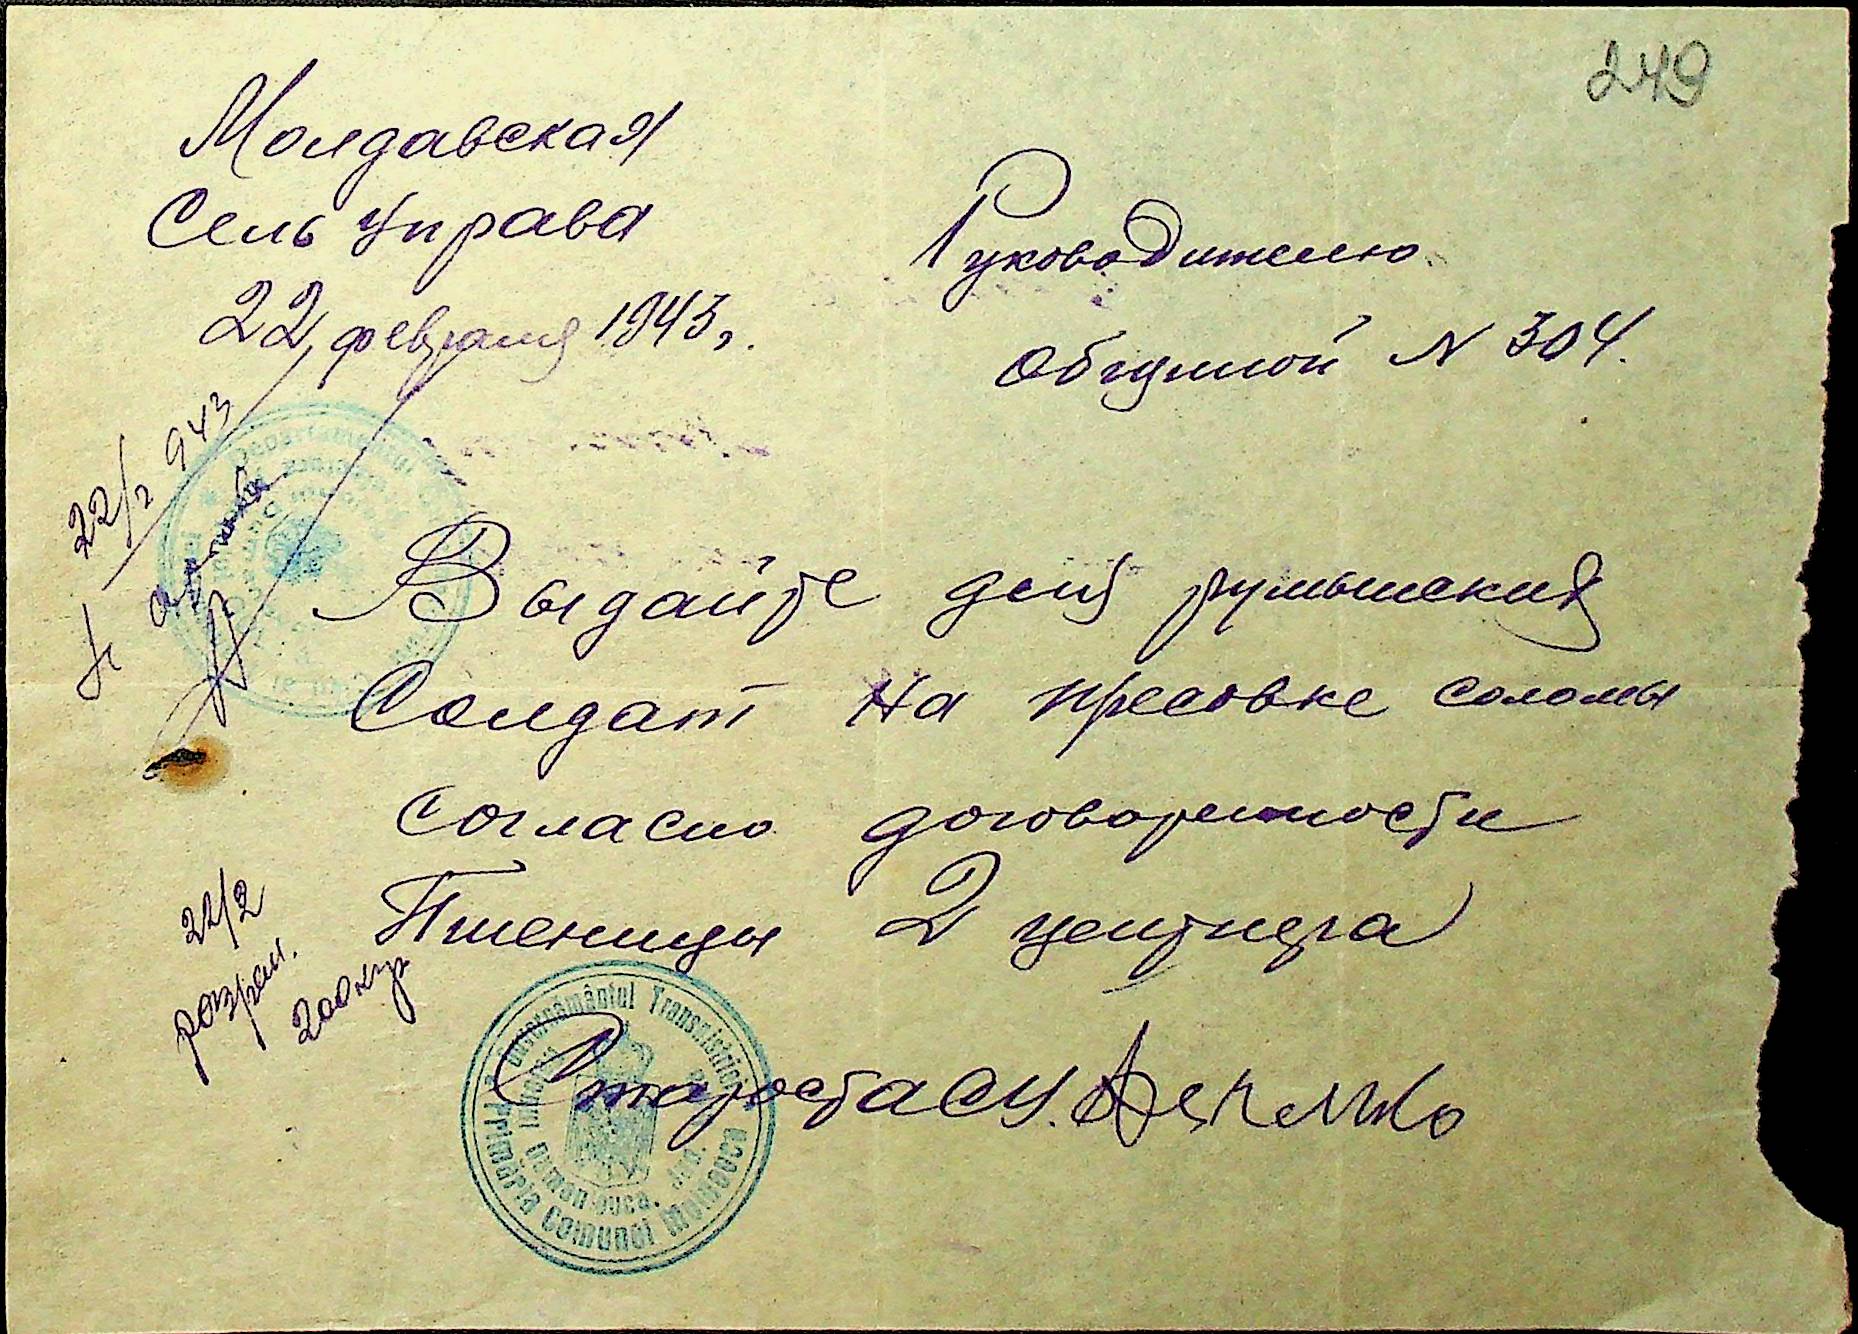 249
Молдавская
Сель управа
22 февраля 1943г.
Руководителю
Общиной N 304.
22/2 943
Выдайте для румынских
Солдат на пресовке соломы
согласно договорености
Пшеницы 2 центнера
22/2
розреш.
200 кгр
Староста СУ.
Guvernământul Transnistriei
Primăria Comunei Moldovca